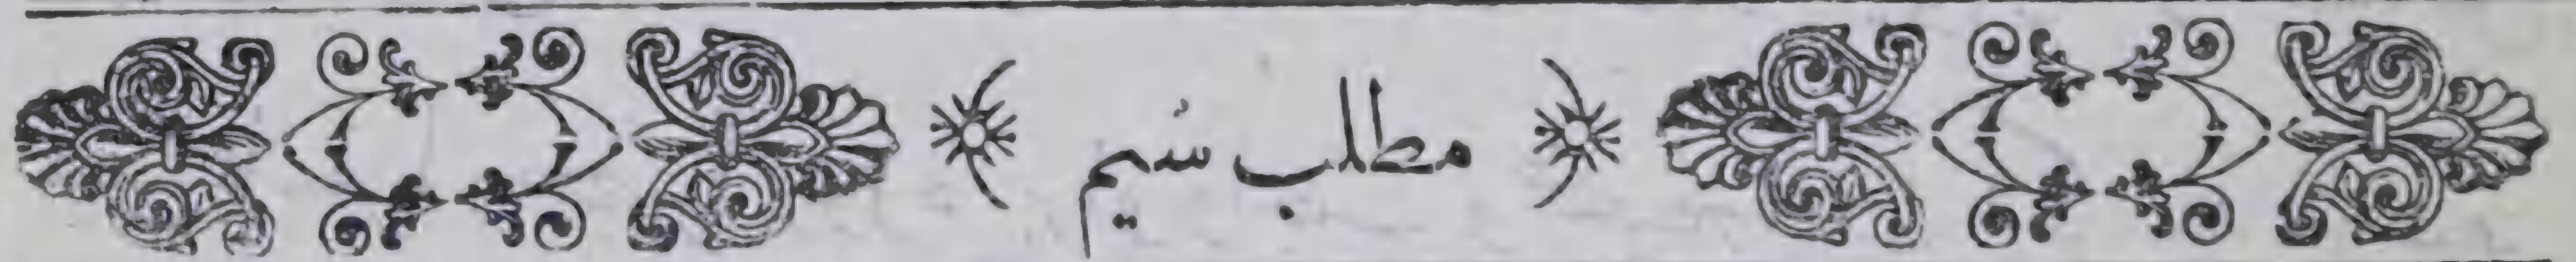 مطلب سُيم